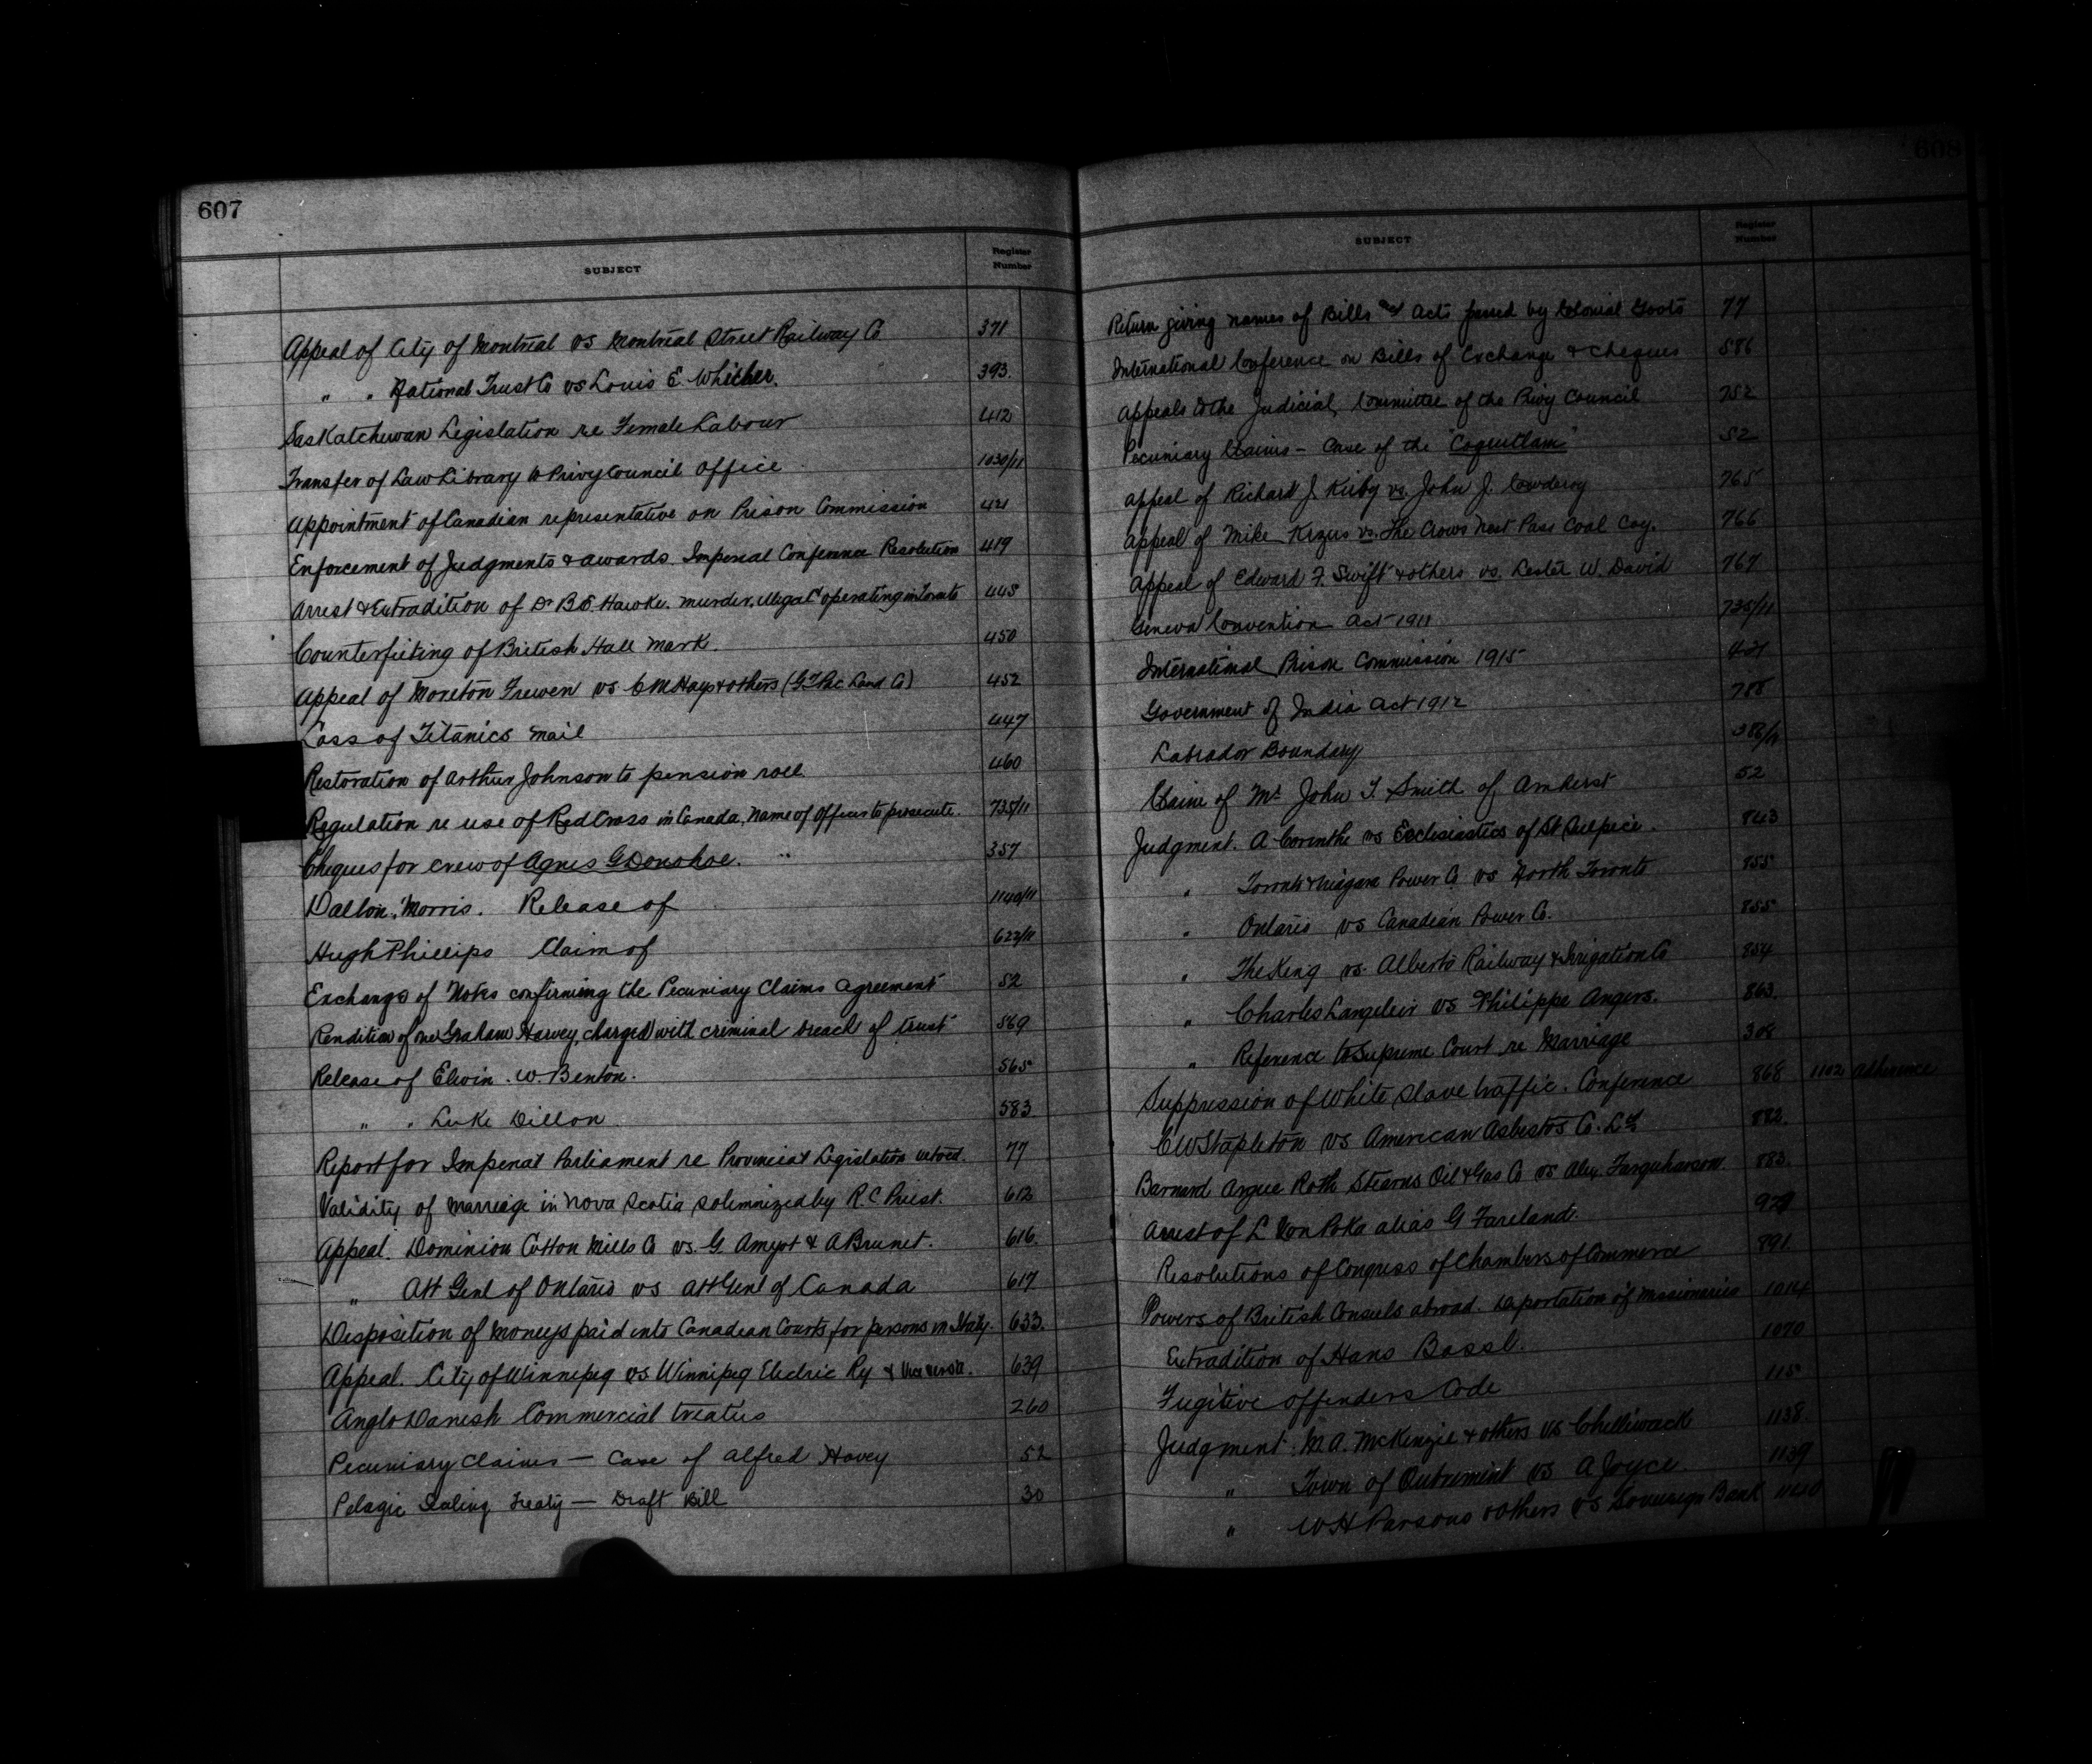 607
SUBJECT Register Number
Appeal of City of Montreal vs Montreal Street Railway Co 371
" " National Trust Co vs Louis E. Whicher. 393.
Saskatchewan Legislation re Female Labour 412
Transfer of Law Library to Privy Council Office 1030/11
Appointment of Canadian representative on Prison Commission 421
Enforcement of Judgments & awards. Imperial Conference Resolution 419
Arrest & Extradition of Dr B.E. Hawke. murder, illegal operating in Toronto 445
Counterfeiting of British Hall Mark. 450
Appeal of Moreton Frewen vs C M Hays & others (G T Pac Land Co) 452
Loss of Titanics mail 447
Restoration of Arthur Johnson to pension roll. 460
Regulation re use of Red Cross in Canada, name of officer to prosecute. 735/11
Cheques for crew of Agnes G Donohoe. 357
Dalton, Morris. Release of 1140/11
Hugh Phillips Claim of 622/11
Exchange of Notes confirming the Pecuniary Claims agreement 52
Rendition of one Graham Harvey, charged with criminal breach of trust 569
Release of Elwin. W. Benton. 565
" " Luke Dillon 583
Report for Imperial Parliament re Provincial Legislation vetoed. 77
Validity of marriage in Nova Scotia solemnized by R.C Priest. 612
Appeal. Dominion Cotton Mills Co vs. G. Amyot & A Brunet. 616
" Att Genl of Ontario vs Att Genl of Canada 617
Disposition of moneys paid into Canadian Courts for persons in Italy. 633.
Appeal. City of Winnipeg vs Winnipeg Electric Ry & vice versa. 639
Anglo Danish Commercial treaties 260
Pecuniary Claims — Case of Alfred Hovey 52
Pelagic Sealing Treaty — Draft Bill 30
608
SUBJECT Register Number
Return giving names of Bills and Acts passed by Colonial Govts 77
International Conference on Bills of Exchange & Cheques 586
Appeals to the Judicial Committee of the Privy Council 752
Pecuniary Claims – Case of the "Coquitlam" 52
Appeal of Richard J. Kirby vs. John J. Cowderoy 765
Appeal of Mike Krzus vs. The Crows Nest Pass Coal Coy. 766
Appeal of Edward F. Swift & others vs. Lester W. David 767
Geneva Convention Act 1911 735/11
International Prison Commission 1915 421
Government of India Act 1912 788
Labrador Boundary 386/11
Claim of Mr John T. Smith of Amherst 52
Judgment. A. Corinthe vs Ecclesiastics of St Sulpice. 843
" Toronto & Niagara Power Co vs North Toronto 855
" Ontario vs Canadian Power Co. 855
" The King vs. Alberta Railway & Irrigation Co 854
" Charles Langelier vs Philippe Angers. 863.
" Reference to Supreme Court re Marriage 308
Suppression of White Slave traffic. Conference 868 1102 adherence
C W Stapleton vs American Asbestos Co. Ld 882.
Barnard Argue Roth Stearns Oil & Gas Co vs Alex. Farquharson. 883.
Arrest of L Von Poka alias G Fareland. 929
Resolutions of Congress of Chambers of Commerce 891.
Powers of British Consuls abroad. Deportation of missionaries 1014
Extradition of Hans Bassl. 1070
Fugitive Offenders Code 115
Judgment: M A. McKenzie & others vs Chilliwack 1138
" Town of Outremint vs A Joyce. 1139
" W H Parsons & others vs Sovereign Bank 1140